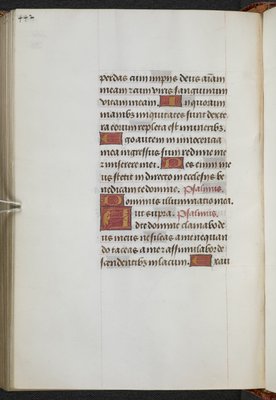 442
perdas cum impijs deus aīam
meam: et cum viris sanguinum
vitam meam. In quorum
manibus iniquitates sunt: dexte
ra eorum repleta est muneribus.
Ego autem in innocentia
mea ingressus sum: redime me
et miserere mei. Pes enim me
us stetit in directo: in ecclesijs be
nedicam te domine. Psalmus.
Dominus illuminatio mea.
ut supra. Psalmus.
Ad te domine clamabo de
us meus ne sileas a me: nequan
do taceas a me: et assimilabor de
scendentibus in lacum. Exau